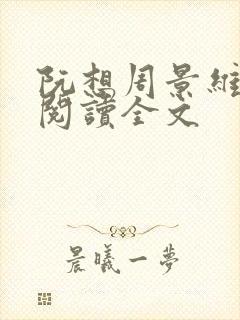 阮想周景維
閱讀全文
晨曦一夢